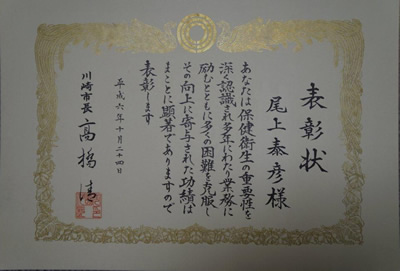 表彰状
尾上泰彦様
あなたは保健衛生の重要性を
深く認識され多年にわたり業務に
励むとともに多くの困難を克服し
その向上に寄与された功績は
まことに顕著でありますので
表彰します
平成六年十月二十四日
川崎市長 高橋清